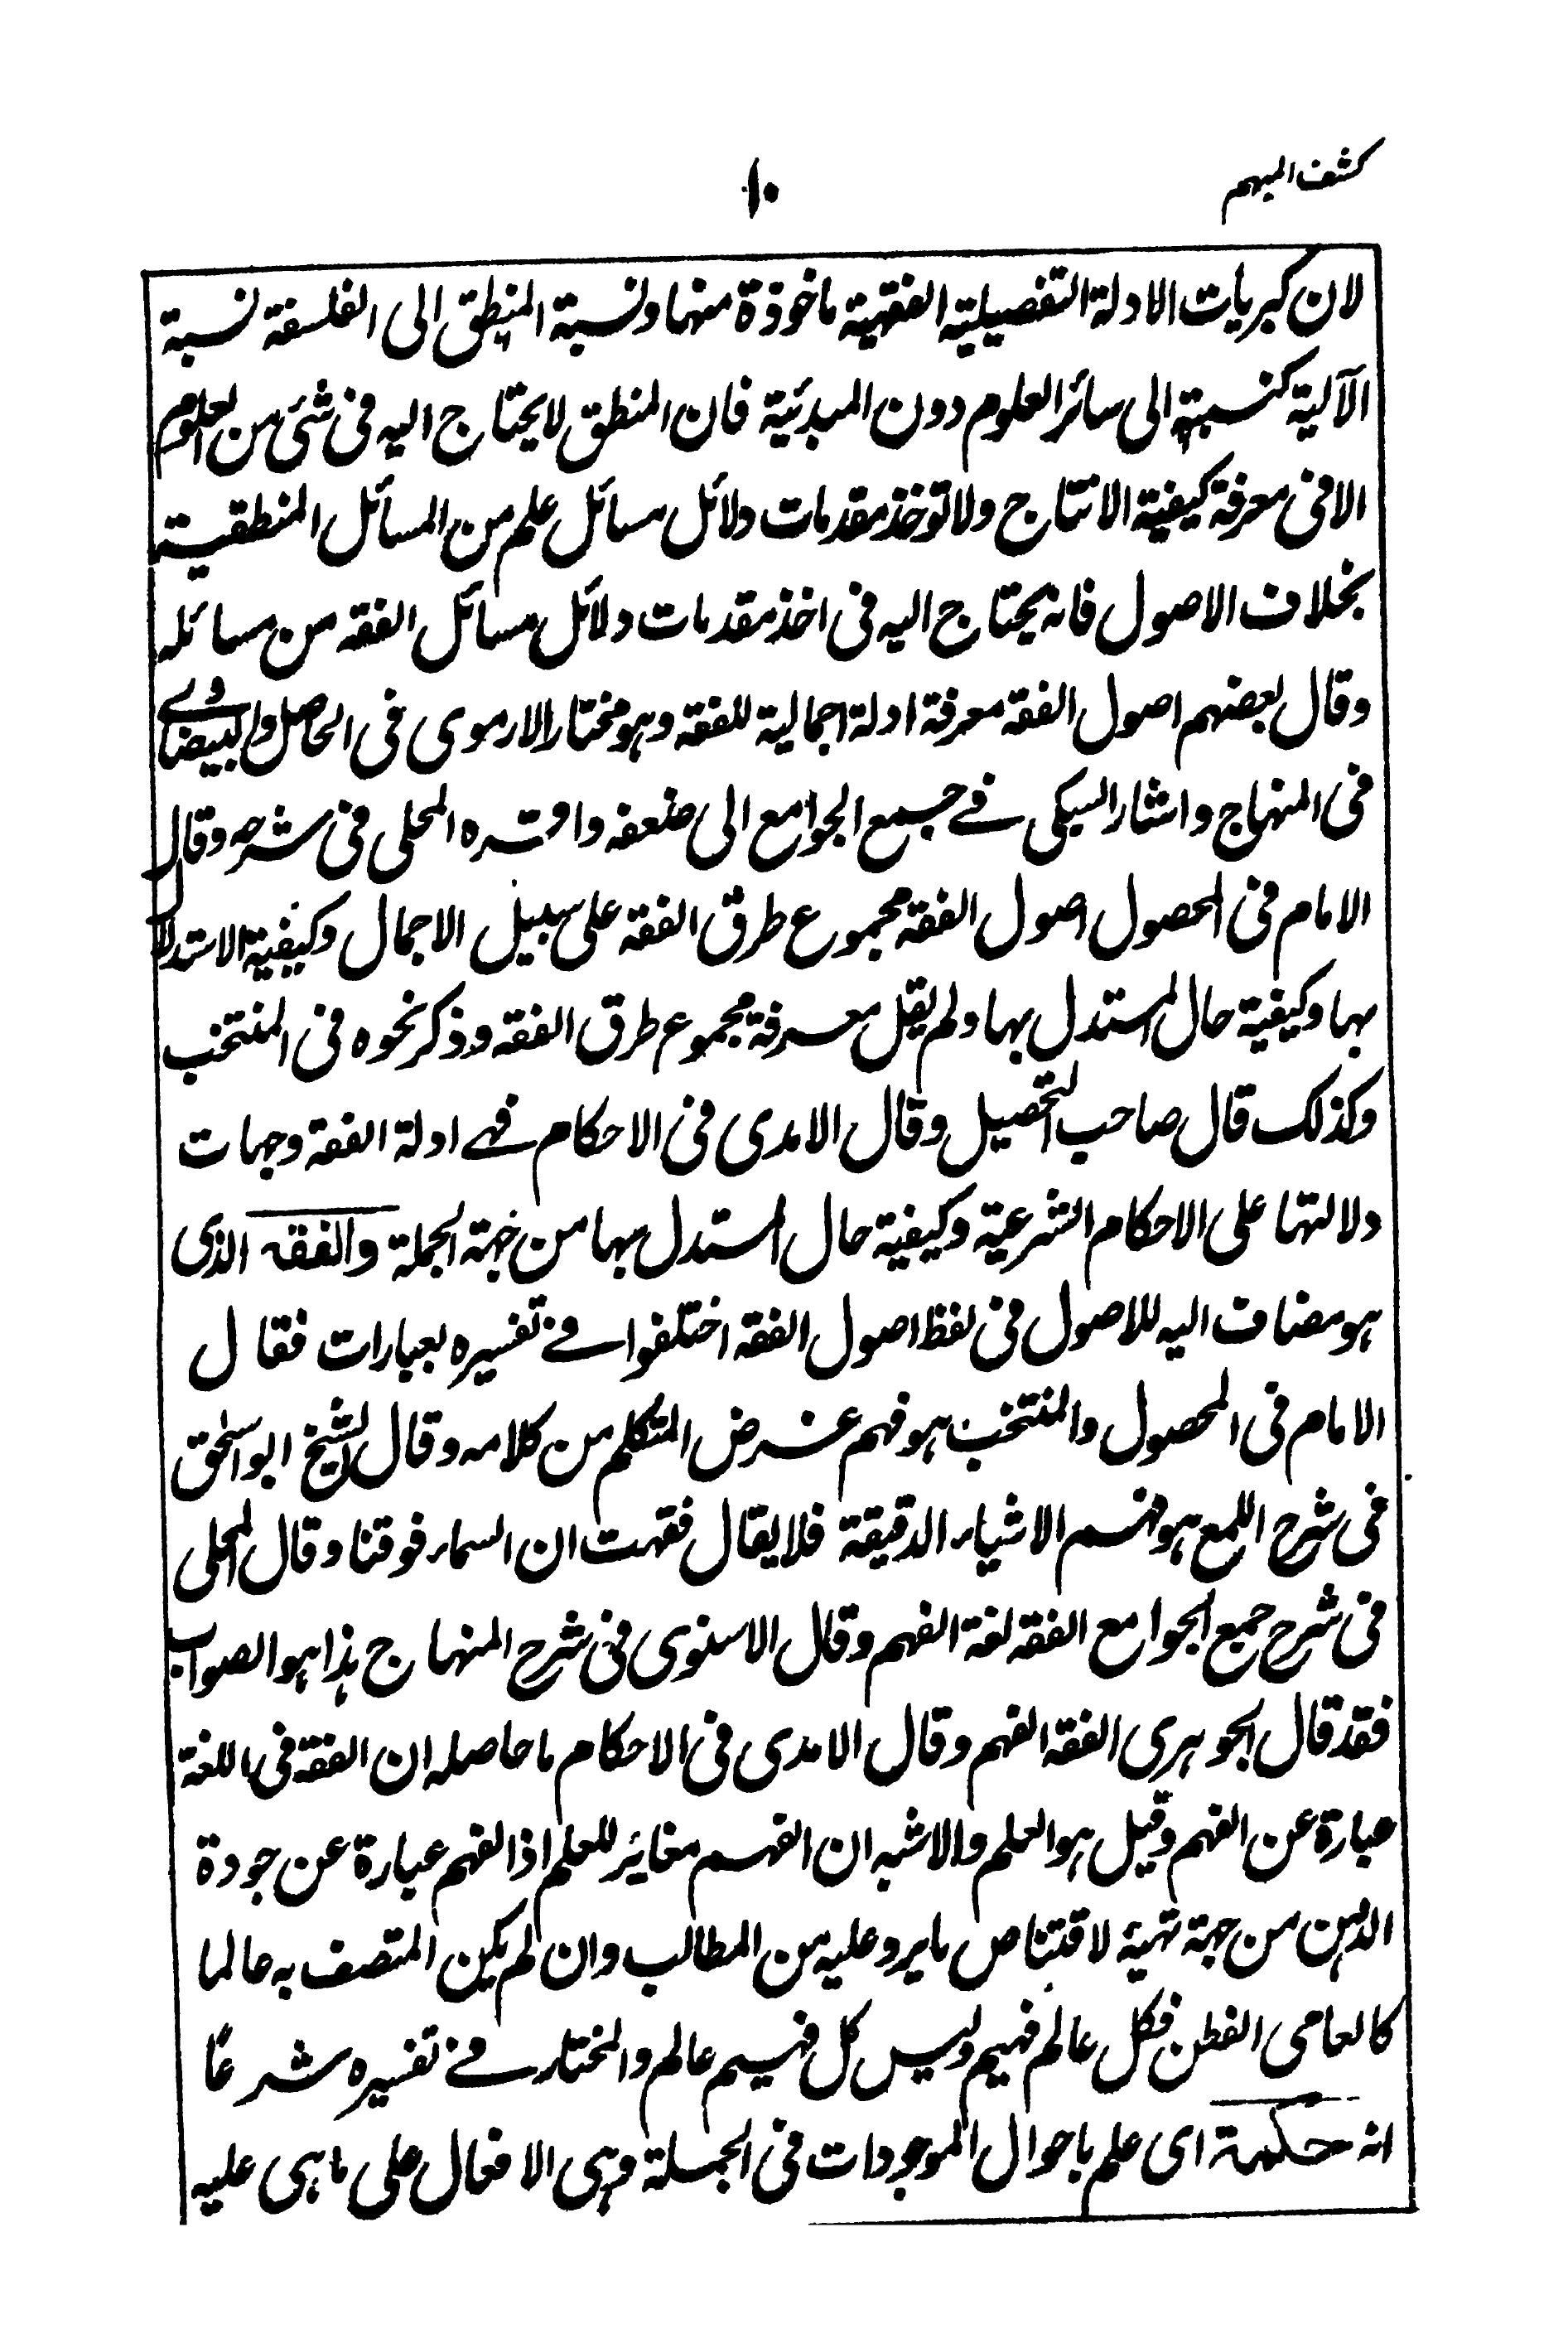 كشف المبهم
١٠
لان كبريات الادلة التفصيلية الفقهية ماخوذة منها ونسبة المنطق الى الفلسفة نسبة
الآلية كنسبته الى سائر العلوم دون المبدئية فان المنطق لا يحتاج اليه فى شئ من العلوم
الا فى معرفة كيفية الانتاج ولا توخذ مقدمات دلائل مسائل علم من المسائل المنطقية
بخلاف الاصول فانه يحتاج اليه فى اخذ مقدمات دلائل مسائل الفقه من مسائله
وقال بعضهم اصول الفقه معرفة ادلة اجمالية للفقه وهو مختار الارموى فى الحاصل والبيضاوى
فى المنهاج واشار السبكى فے جمع الجوامع الى ضعفه واقره المحلى فى شرحه وقال
الامام فى المحصول اصول الفقه مجموع طرق الفقه على سبيل الاجمال وكيفية الاستدلال
بها وكيفية حال المستدل بها ولم يقل معرفة مجموع طرق الفقه وذكر نحوه فى المنتخب
وكذلك قال صاحب التحصيل وقال الامدى فى الاحكام فهے ادلة الفقه وجهات
دلالتها على الاحكام الشرعية وكيفية حال المستدل بها من جهة الجملة والفقه الذى
هو مضاف اليه للاصول فى لفظ اصول الفقه اختلفوا فے تفسيره بعبارات فقال
الامام فى المحصول والمنتخب هو فهم غرض المتكلم من كلامه وقال الشيخ ابو اسحٰق
فى شرح اللمع هو فهم الاشياء الدقيقة فلا يقال فقهت ان السماء فوقنا وقال المحلى
فى شرح جمع الجوامع الفقه لغة الفهم وقال الاسنوى فى شرح المنهاج هذا هو الصواب
فقد قال الجوهرى الفقه الفهم وقال الامدى فى الاحكام ما حاصله ان الفقه فى اللغة
عبارة عن الفهم وقيل هو العلم والاشبه ان الفهم مغائر للعلم اذ الفهم عبارة عن جودة
الذهن من جهة تهيئه لاقتناص ما يرد عليه من المطالب وان لم يكن المتصف به عالما
كالعامى الفطن فكل عالم فهيم وليس كل فهيم عالم والمختار فے تفسيره شرعًا
انه حكمة اى علم باحوال الموجودات فى الجملة وهى الافعال على ما هى عليه